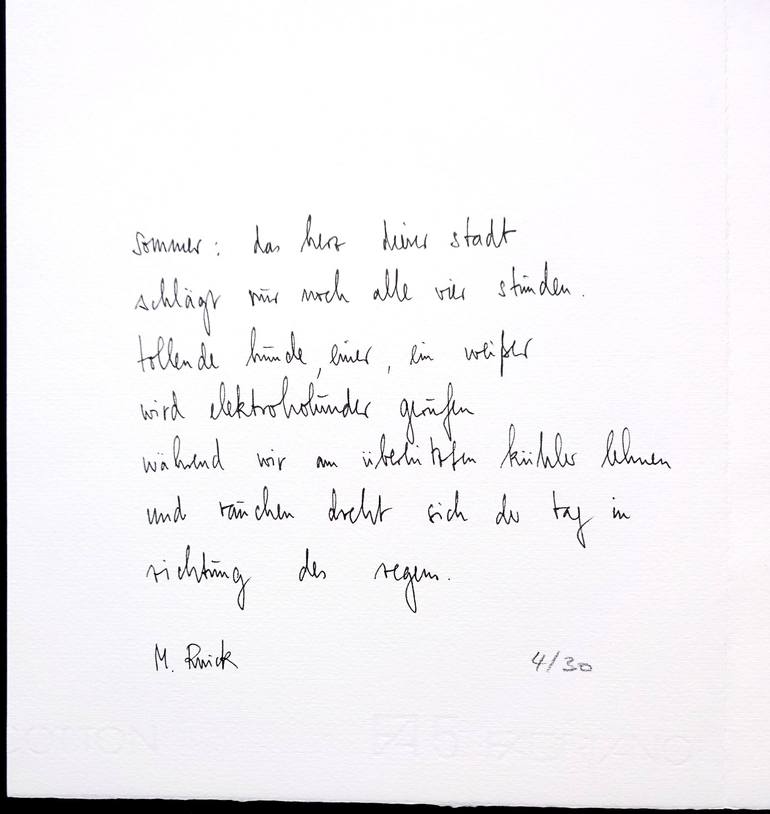 sommer: das herz deiner stadt
schlägt nur noch alle vier stunden.
tollende hunde, einer, ein weißer
wird elektroholunder gerufen
während wir am überhitzten kühler lehnen
und rauchen dreht sich der tag in
richtung des regens.
M. 4/30
COTTON FABRIANO